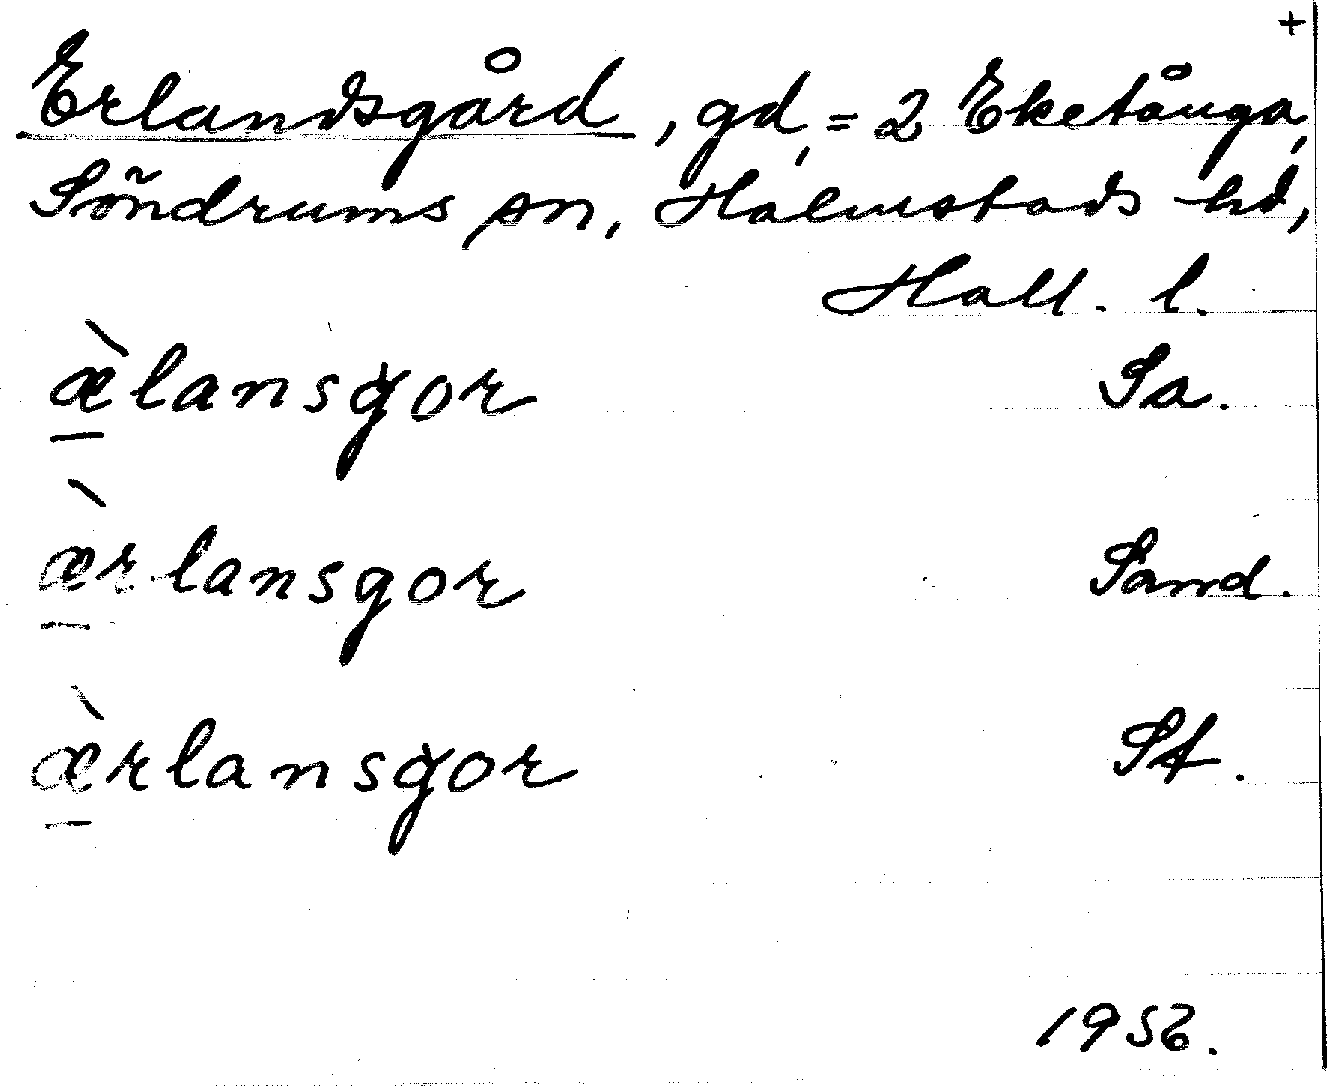 +
Erlandsgård, gd, = 2 Eketånga,
Söndrums sn, Halmstads hd,
Hall. l.
æ̀lansgor Sa.
æ̀rlansgor Sand.
æ̀rlansgor St.
1956.